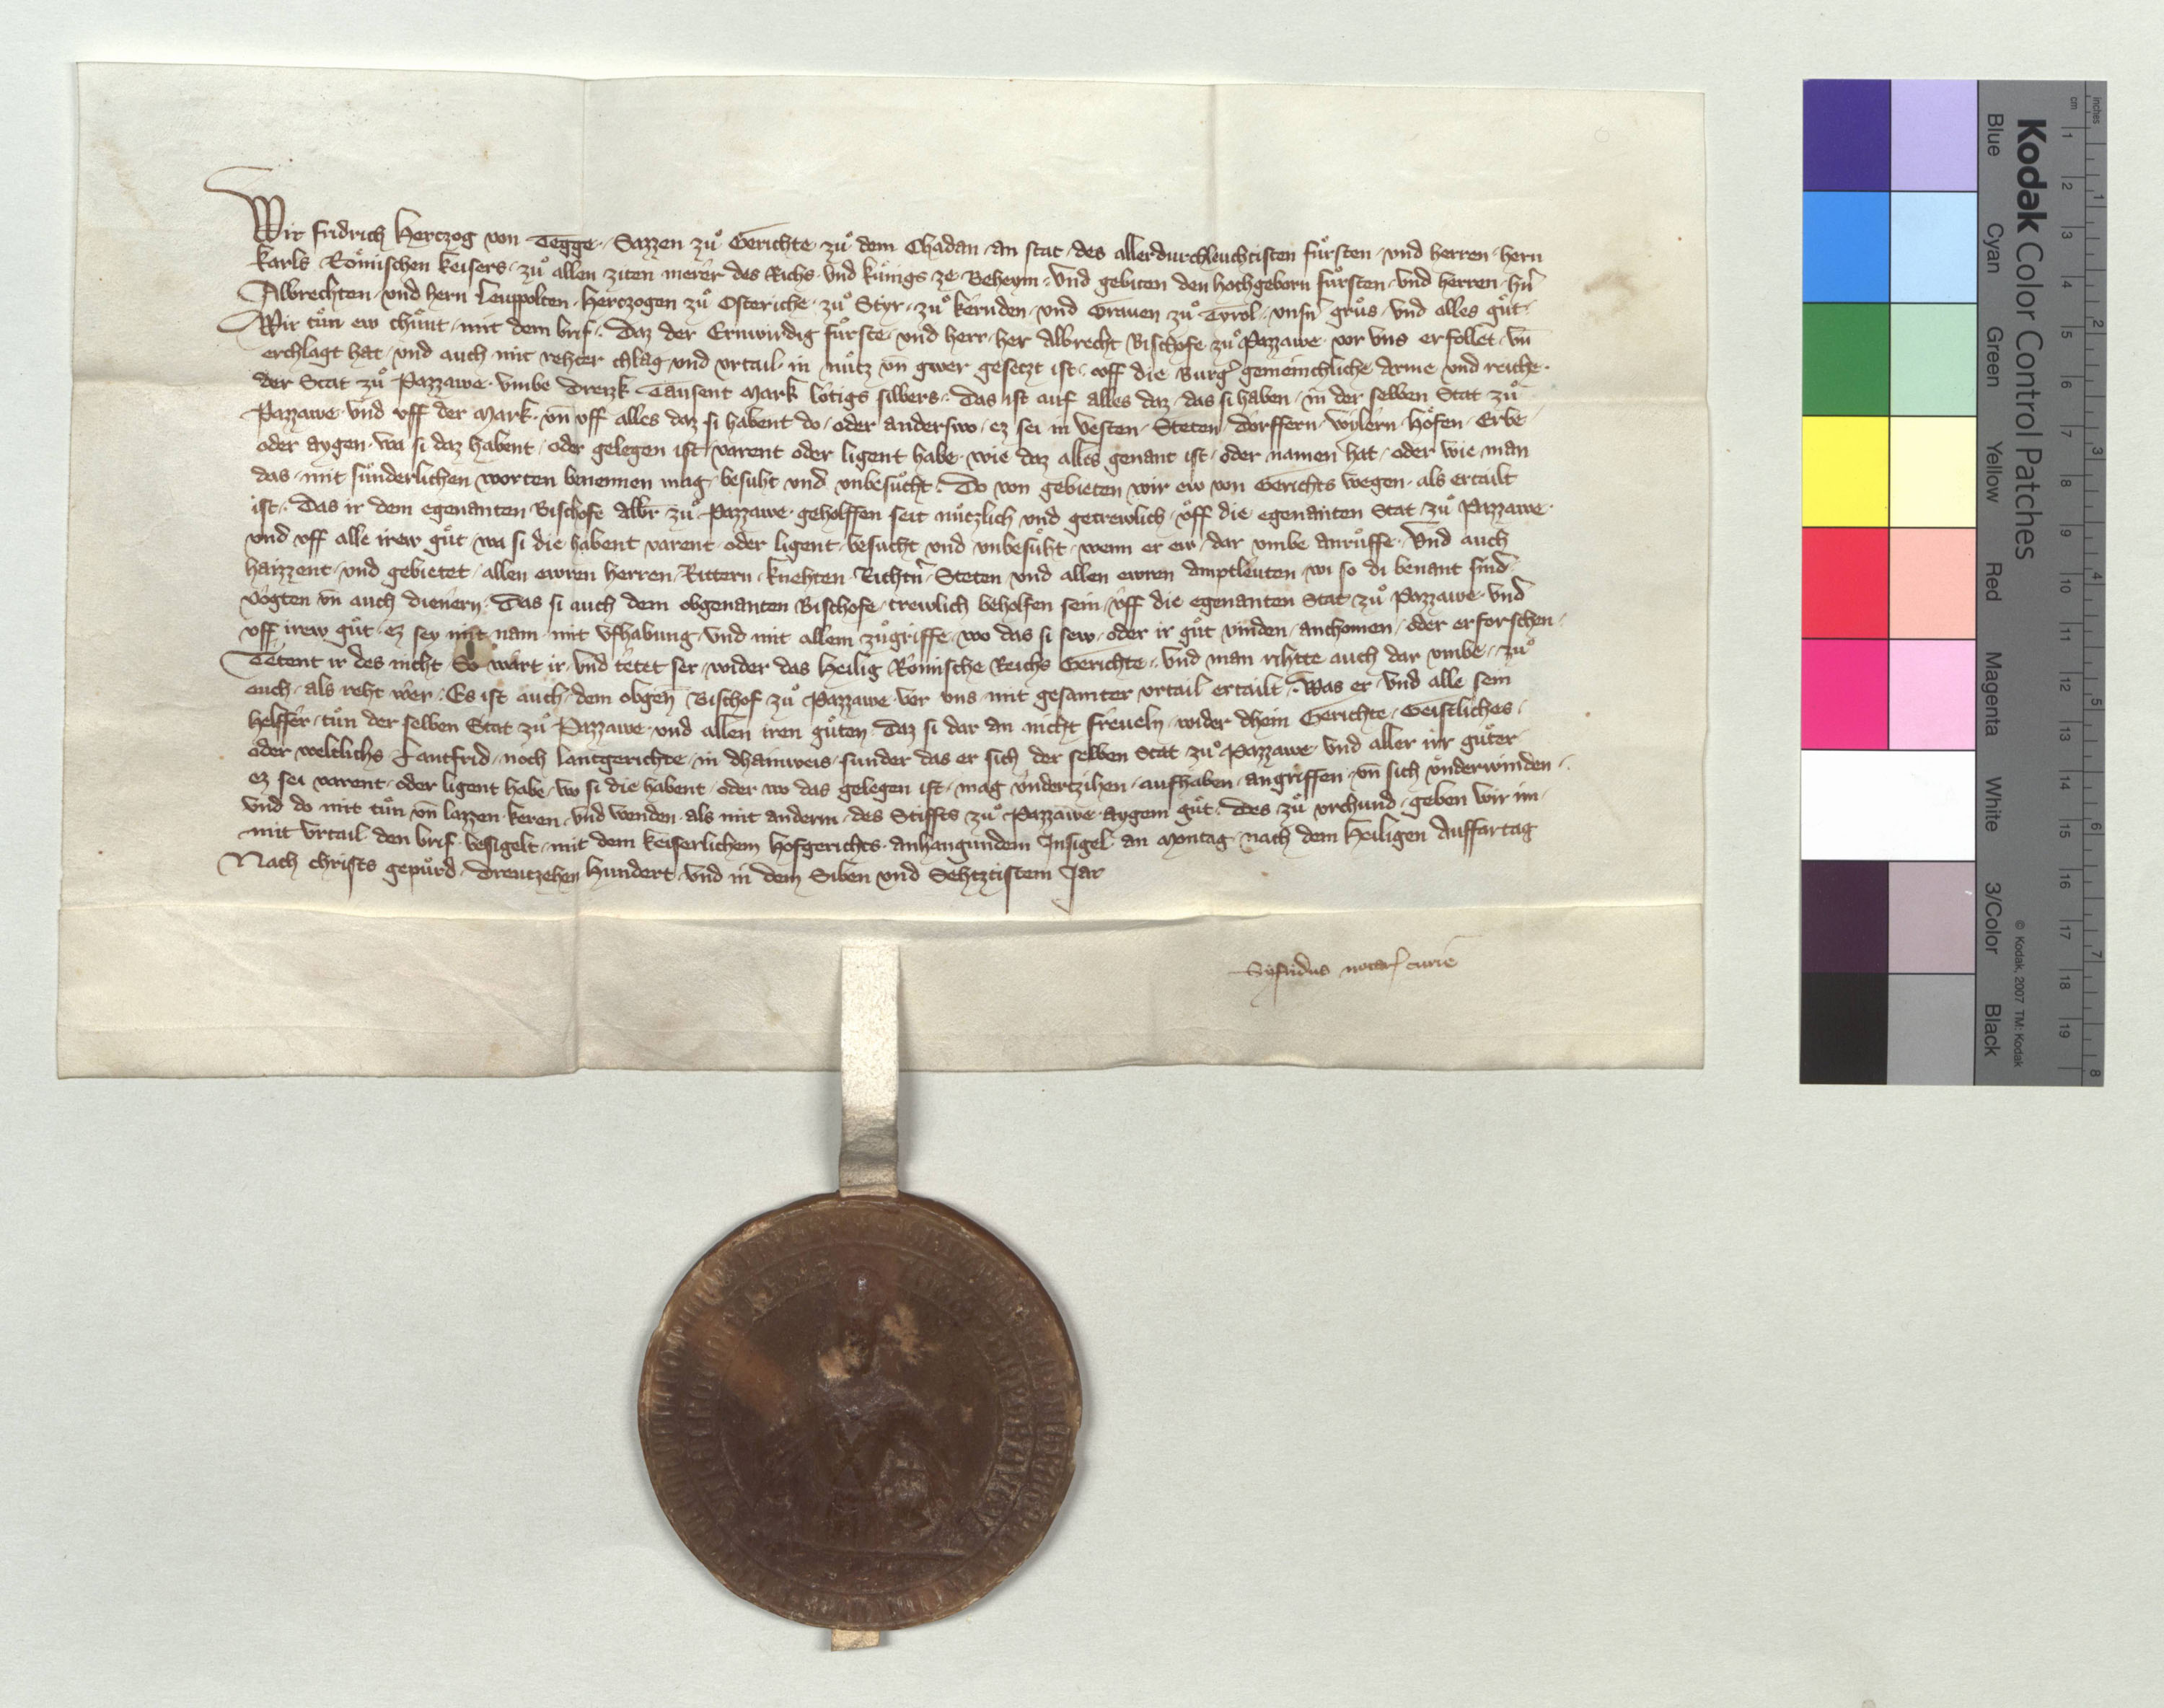 Wir fridrich Herczog von Tegge · Sazzen zuͦ Gerichte · zuͦ dem Chadan · an stat · des allerdurchleuchtisten fuͤrsten · vnd herren · hern
karls · Roͤmischen keisers · zuͦ allen ziten merer des Richs · vnd kuͤnigs · ze · Beheym · Vnd gebiten den hochgeborn fuͤrsten · vnd herren · hn̄
Albrechten · vnd hern Leuppolten · Herczogen zuͦ Osteriche · zuͦ Styr · zuͦ kernden · vnd Grauen zuͦ Tyrol · vnsn̄ gruͦs · vnd alles guͦt ·
Wir tuͦn ew chuͦnt · mit dem brif · Daz der Erwirdig fuͤrste · vnd herr · her Albrecht Bischofe · zuͦ Pazzawe · vor vns erfollet · vn̄
erchlagt hat · vnd auch mit rehter chlag · vnd vrtail · in nuͤtz vn̄ gwer gesetzt ist · vff die Burg̾ gemeinchliche Arme vnd reiche ·
der Stat zuͦ Pazzawe · vmbe Dreizk Tausent Mark loͤtigs silbers · Das ist auf alles daz · das si haben · in der selben Stat zuͦ
Pazzawe · vnd vff der Mark · vn̄ vff alles daz si habent do · oder anderswo · ez sei in Vesten · Steten · doͤrffern · wylern · Hoͤfen · Erbe
oder aygen · wa si daz habent · oder gelegen ist · varent oder ligent habe · wie daz alles genant ist · oder namen hat · oder wie man
das · mit suͤnderlichen worten benennen mag · besuͦht vnd vnbesuͦcht · Do von gebieten wir ew von Gerichts wegen · als ertailt
ist · Das ir dem egenanten Bischofe Albr zuͦ Pazzawe · geholffen seit nuͤtzlich vnd getrewlich · vff die egenanten Stat · zuͦ Pazzawe ·
vnd vff alle irew guͦt · wa si die habent varent · oder ligent · besucht vnd vnbesuͦht · wenn er ew · dar vmbe anruͤffe · Vnd auch
haizzent · vnd gebietet · allen ewren herren · Rittern · knehten · Richtn̄ · Steten · vnd allen ewren Amptleuten · wi so di benant sind ·
voͤgten vn̄ auch dienern · Das si auch dem obgenanten Bischofe · trewlich beholfen sein · vff die egenanten Stat · zuͦ Pazzawe · vnd
vff irew guͦt · ez sey mit nam · mit Vfhabung · vnd mit allem zuͦgriffe · wo das si sew · oder ir guͦt vinden · anchomen · oder erforschen ·
Tetent ir des nicht So wart ir · vnd tetet ser · wider das Heilig Roͤmische Reichs Gerichte · vnd man rihtte auch dar vmbe · zuͦ
euch · als reht wer · Es ist auch · dem obgen̄ Bischof zuͦ Pazzawe · vor vns · mit gesamter vrtail ertailt · Was er · vnd alle sein
helffer · tuͦn der selben Stat zuͦ Pazzawe · vnd allen iren guͦten · Daz si dar an nicht freueln · wider dhein Gerichte · Geistliches ·
oder weltlichs Lantfrid · noch lantgerichte · in dhainweis · sunder das er sich der selben Stat zuͦ Pazzawe · vnd aller irr guͤter
ez sei varent · oder ligent habe · wo si die habent · oder wo das gelegen ist · mag vndertzihen · aufhaben · angriffen · vn̄ sich vnderwinden ·
vnd do mit tuͦn · vn̄ lazzen · keren · vnd wenden · als mit anderm · des Stiffts zuͦ Pazzawe · aygem guͦt · Des zuͦ vrchund · geben wir im ·
mit vrtail den brif · besigelt · mit dem keiserlichem Hofgerichts · anhangundem Insigel · an Montag · nach dem Heiligen Auffartag
Nach christs gepuͤrd · Dreutzehen Hundert · vnd in dem Siben vnd Sehtzistem Jar
Syfridus notar̾ curie
Kodak Color Control Patches
Blue Cyan Green Yellow Red Magenta White 3/Color Black
© Kodak, 2007 TM: Kodak
cm 1 2 3 4 5 6 7 8 9 10 11 12 13 14 15 16 17 18 19
inches 1 2 3 4 5 6 7 8